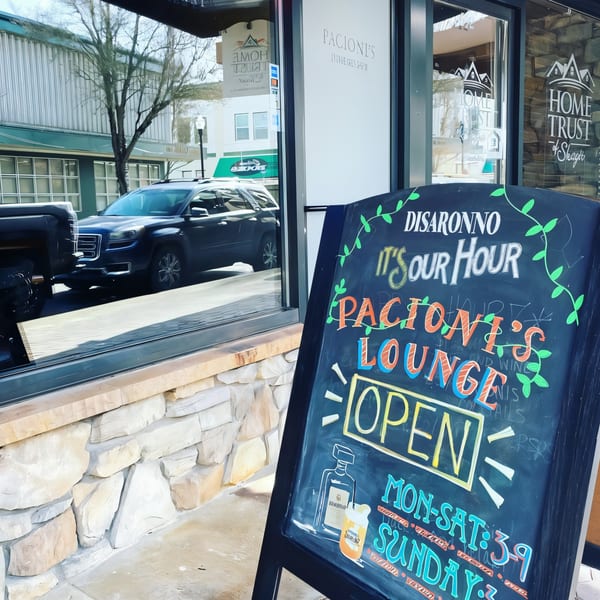 PACIONI'S
HOME
TRUST
HOME
TRUST
of Skagit
DISARONNO
IT'S OUR HOUR
PACIONI'S
LOUNGE
OPEN
MON-SAT: 3-9
SUNDAY: